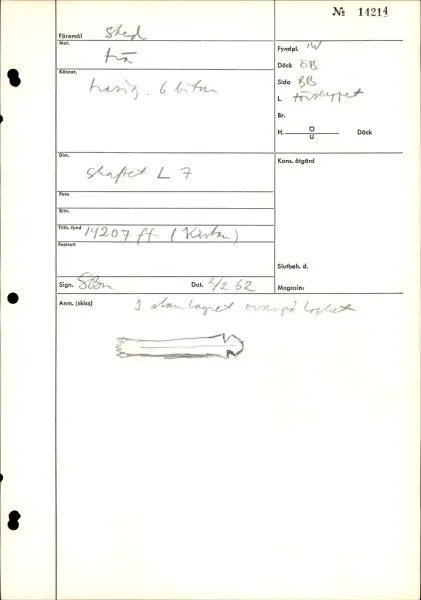 № 14214
Föremål sked
Mat. trä
Fyndpl. IW
Däck ÖB
Kännet. trasig. 6 bitar
Sida BB
L. förskeppet
Br.
H. Ö U Däck
Dim. skaftet L 7
Kons. åtgärd
Foto
Ritn.
Tills. fynd 14207 ff (Kistan)
Fastsatt
Slutbeh. d.
Sign. SBn
Dat. 2/2 62
Magasin:
Anm. (skiss) I slamlagret ovanpå locket